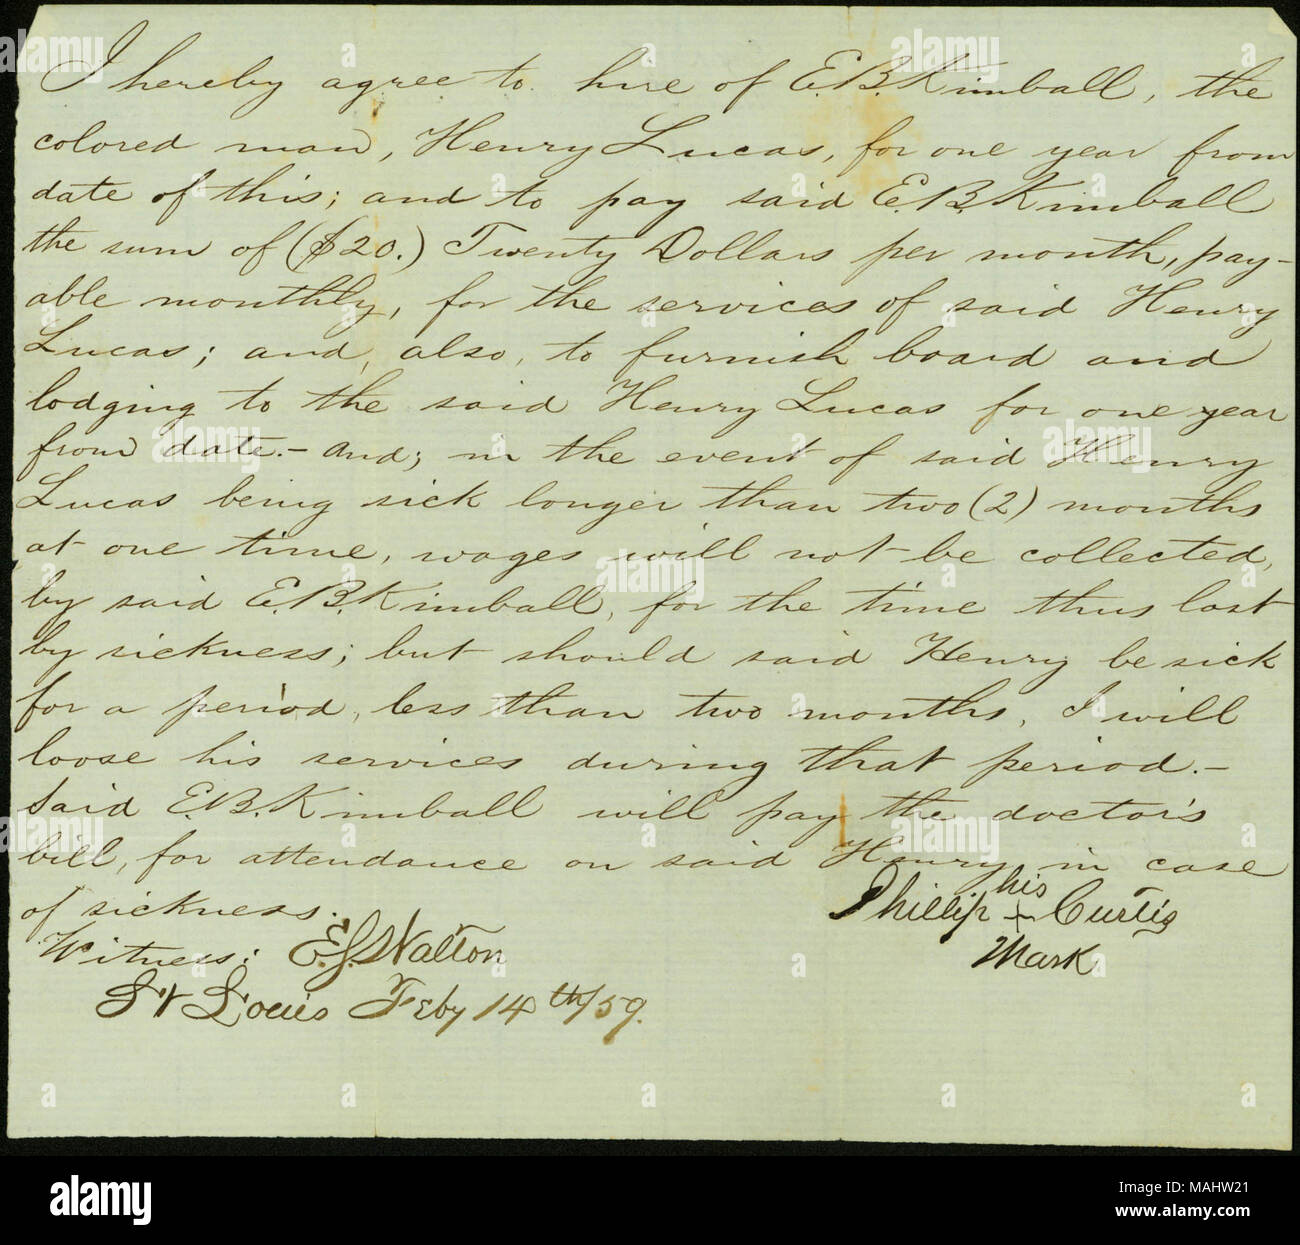 I hereby agree to hire of E.B. Kimball, the
colored man, Henry Lucas, for one year from
date of this; and to pay said E.B. Kimball
the sum of ($20.) Twenty Dollars per month, pay-
able monthly, for the services of said Henry
Lucas; and, also, to furnish board and
lodging to the said Henry Lucas for one year
from date.- And; in the event of said Henry
Lucas being sick longer than two (2) months
at one time, wages will not be collected,
by said E.B. Kimball, for the time thus lost
by sickness; but should said Henry be sick
for a period, less than two months, I will
loose his services during that period.-
Said E.B. Kimball will pay the doctor's
bill, for attendance on said Henry, in case
of sickness.
his
Phillip + Curtis
Mark
Witness: E.J. Walton
St Louis Feby 14th/59.
alamy
Image ID: MAHW21
www.alamy.com